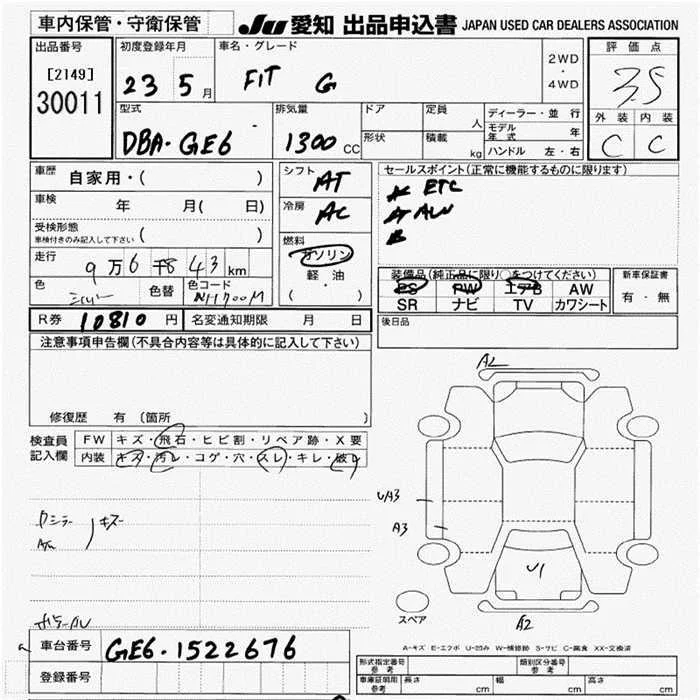 車内保管・守衛保管
JU 愛知 出品申込書 JAPAN USED CAR DEALERS ASSOCIATION
出品番号
[2149]
30011
初度登録年月
23 5 月
車名・グレード
FIT G
2WD
・
4WD
評価点
3.5
外装 内装
C C
型式
DBA-GE6
排気量
1300 CC
ドア
形状
定員 人
積載 kg
ディーラー・並行
モデル年式 年
ハンドル 左・右
車歴 自家用・( )
車検 年 月( 日)
受検形態
車検付きのみ記入して下さい ( )
走行 9万6千843 km
色 シルバー 色替 色コード NH700M
シフト AT
冷房 AC
燃料
ガソリン
軽・油
( ・ )
セールスポイント(正常に機能するものに限ります)
ETC
AW
装備品(純正品に限り○をつけてください)
PS PW エアB AW
SR ナビ TV カワシート
新車保証書
有・無
R券 10810 円 名変通知期限 月 日
後日品
注意事項申告欄(不具合内容等は具体的に記入して下さい)
修復歴 有(箇所 )
検査員記入欄
FW キズ・飛石・ヒビ割・リペア跡・X要
内装 キズ・汚レ・コゲ・穴・スレ・キレ・破レ
キズ
A2
U/A3
A3
U1
A2
スペア
A-キズ E-エクボ U-凹み W-補修跡 S-サビ C-腐食 XX-交換済
車台番号 GE6-1522676
登録番号
形式指定番号 参考
類別区分番号 参考
車庫証明用 参考
長さ cm 幅 cm 高さ cm